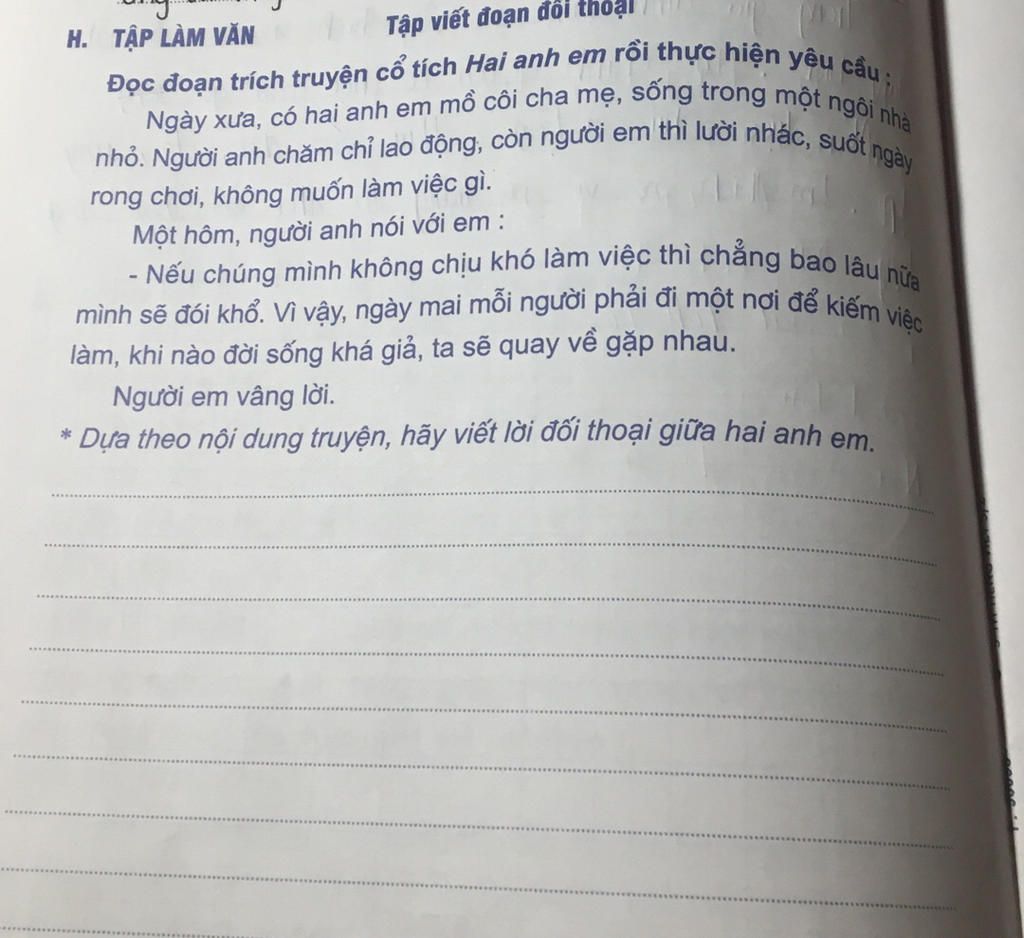 H. TẬP LÀM VĂN
Tập viết đoạn đối thoại
Đọc đoạn trích truyện cổ tích Hai anh em rồi thực hiện yêu cầu :
Ngày xưa, có hai anh em mồ côi cha mẹ, sống trong một ngôi nhà
nhỏ. Người anh chăm chỉ lao động, còn người em thì lười nhác, suốt ngày
rong chơi, không muốn làm việc gì.
Một hôm, người anh nói với em :
- Nếu chúng mình không chịu khó làm việc thì chẳng bao lâu nữa
mình sẽ đói khổ. Vì vậy, ngày mai mỗi người phải đi một nơi để kiếm việc
làm, khi nào đời sống khá giả, ta sẽ quay về gặp nhau.
Người em vâng lời.
* Dựa theo nội dung truyện, hãy viết lời đối thoại giữa hai anh em.